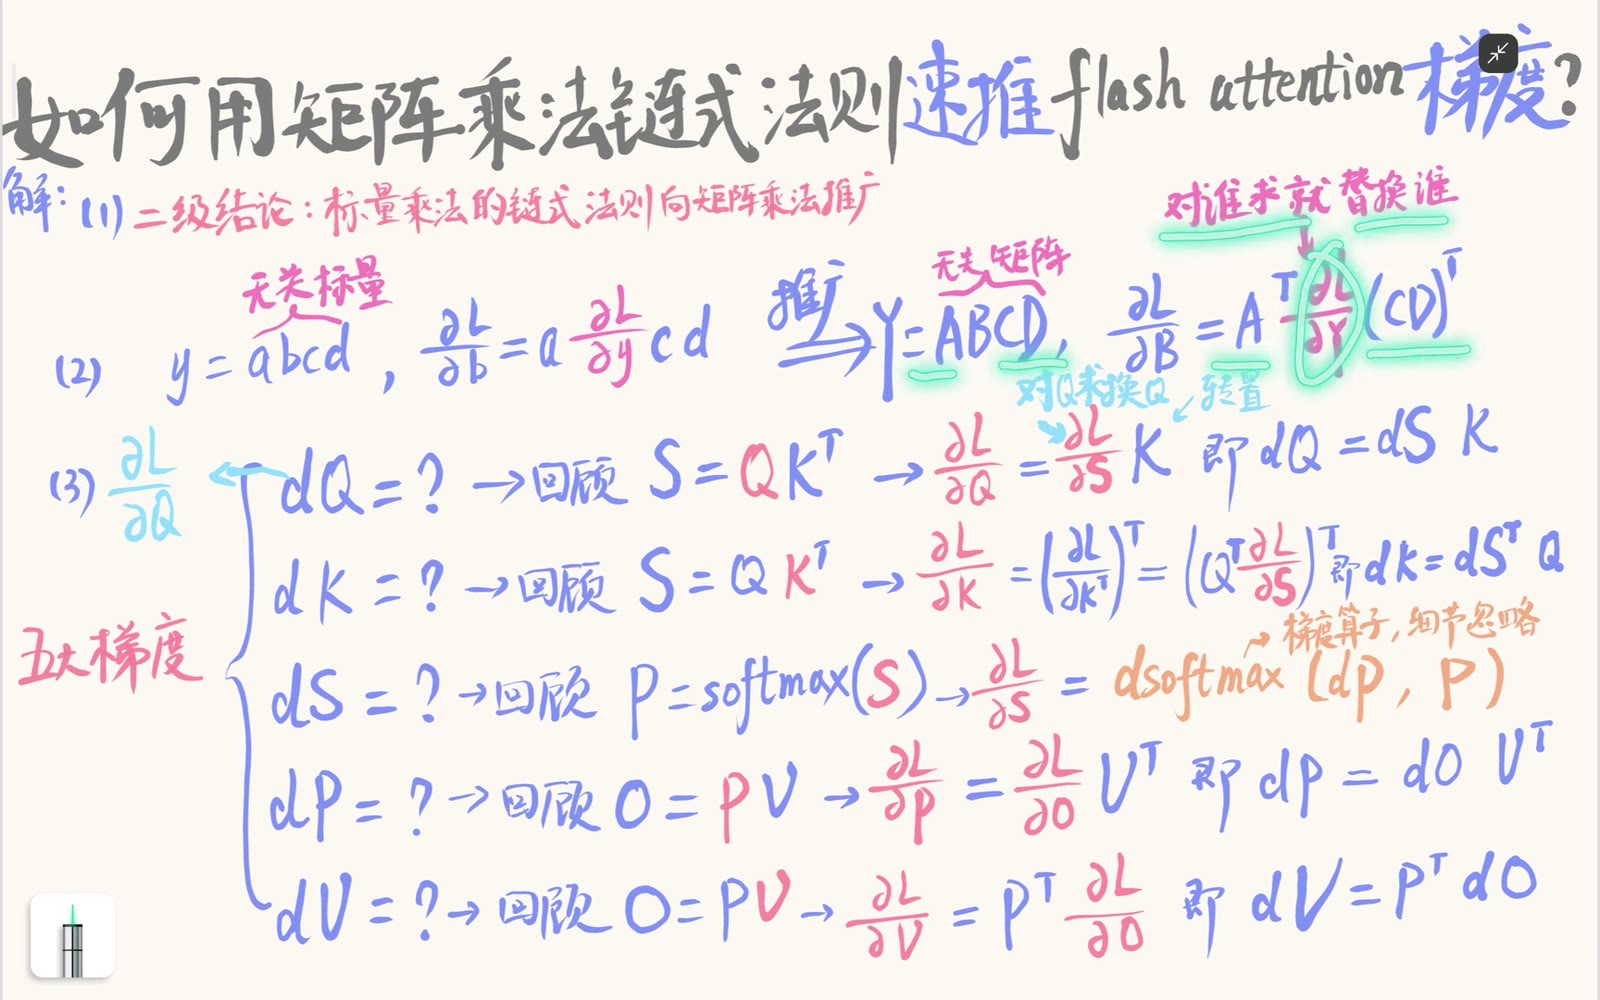 如何用矩阵乘法链式法则速推flash attention梯度?
解: (1) 二级结论: 标量乘法的链式法则向矩阵乘法推广
对谁求就替换谁
无关标量 推广 无关矩阵
(2) y = abcd , ∂L/∂b = a ∂L/∂y cd ⇒ Y = ABCD, ∂L/∂B = Aᵀ ∂L/∂Y (CD)ᵀ
对Q求换Q 转置
(3) ∂L/∂Q ← dQ = ? → 回顾 S = QKᵀ → ∂L/∂Q = ∂L/∂S K 即 dQ = dS K
dK = ? → 回顾 S = QKᵀ → ∂L/∂K = (∂L/∂Kᵀ)ᵀ = (Qᵀ ∂L/∂S)ᵀ 即 dK = dSᵀ Q
梯度算子, 细节忽略
五大梯度
dS = ? → 回顾 P = softmax(S) → ∂L/∂S = dsoftmax (dP, P)
dP = ? → 回顾 O = PV → ∂L/∂P = ∂L/∂O Vᵀ 即 dP = dO Vᵀ
dV = ? → 回顾 O = PV → ∂L/∂V = Pᵀ ∂L/∂O 即 dV = Pᵀ dO